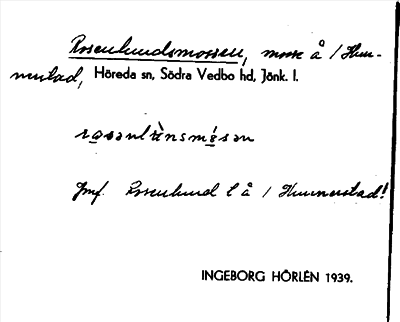 Rosenlundsmossen, mosse å 1 Hun-
nerstad, Höreda sn, Södra Vedbo hd, Jönk. l.
Jmf. Rosenlund l å 1 Hunnerstad!
INGEBORG HÖRLÉN 1939.